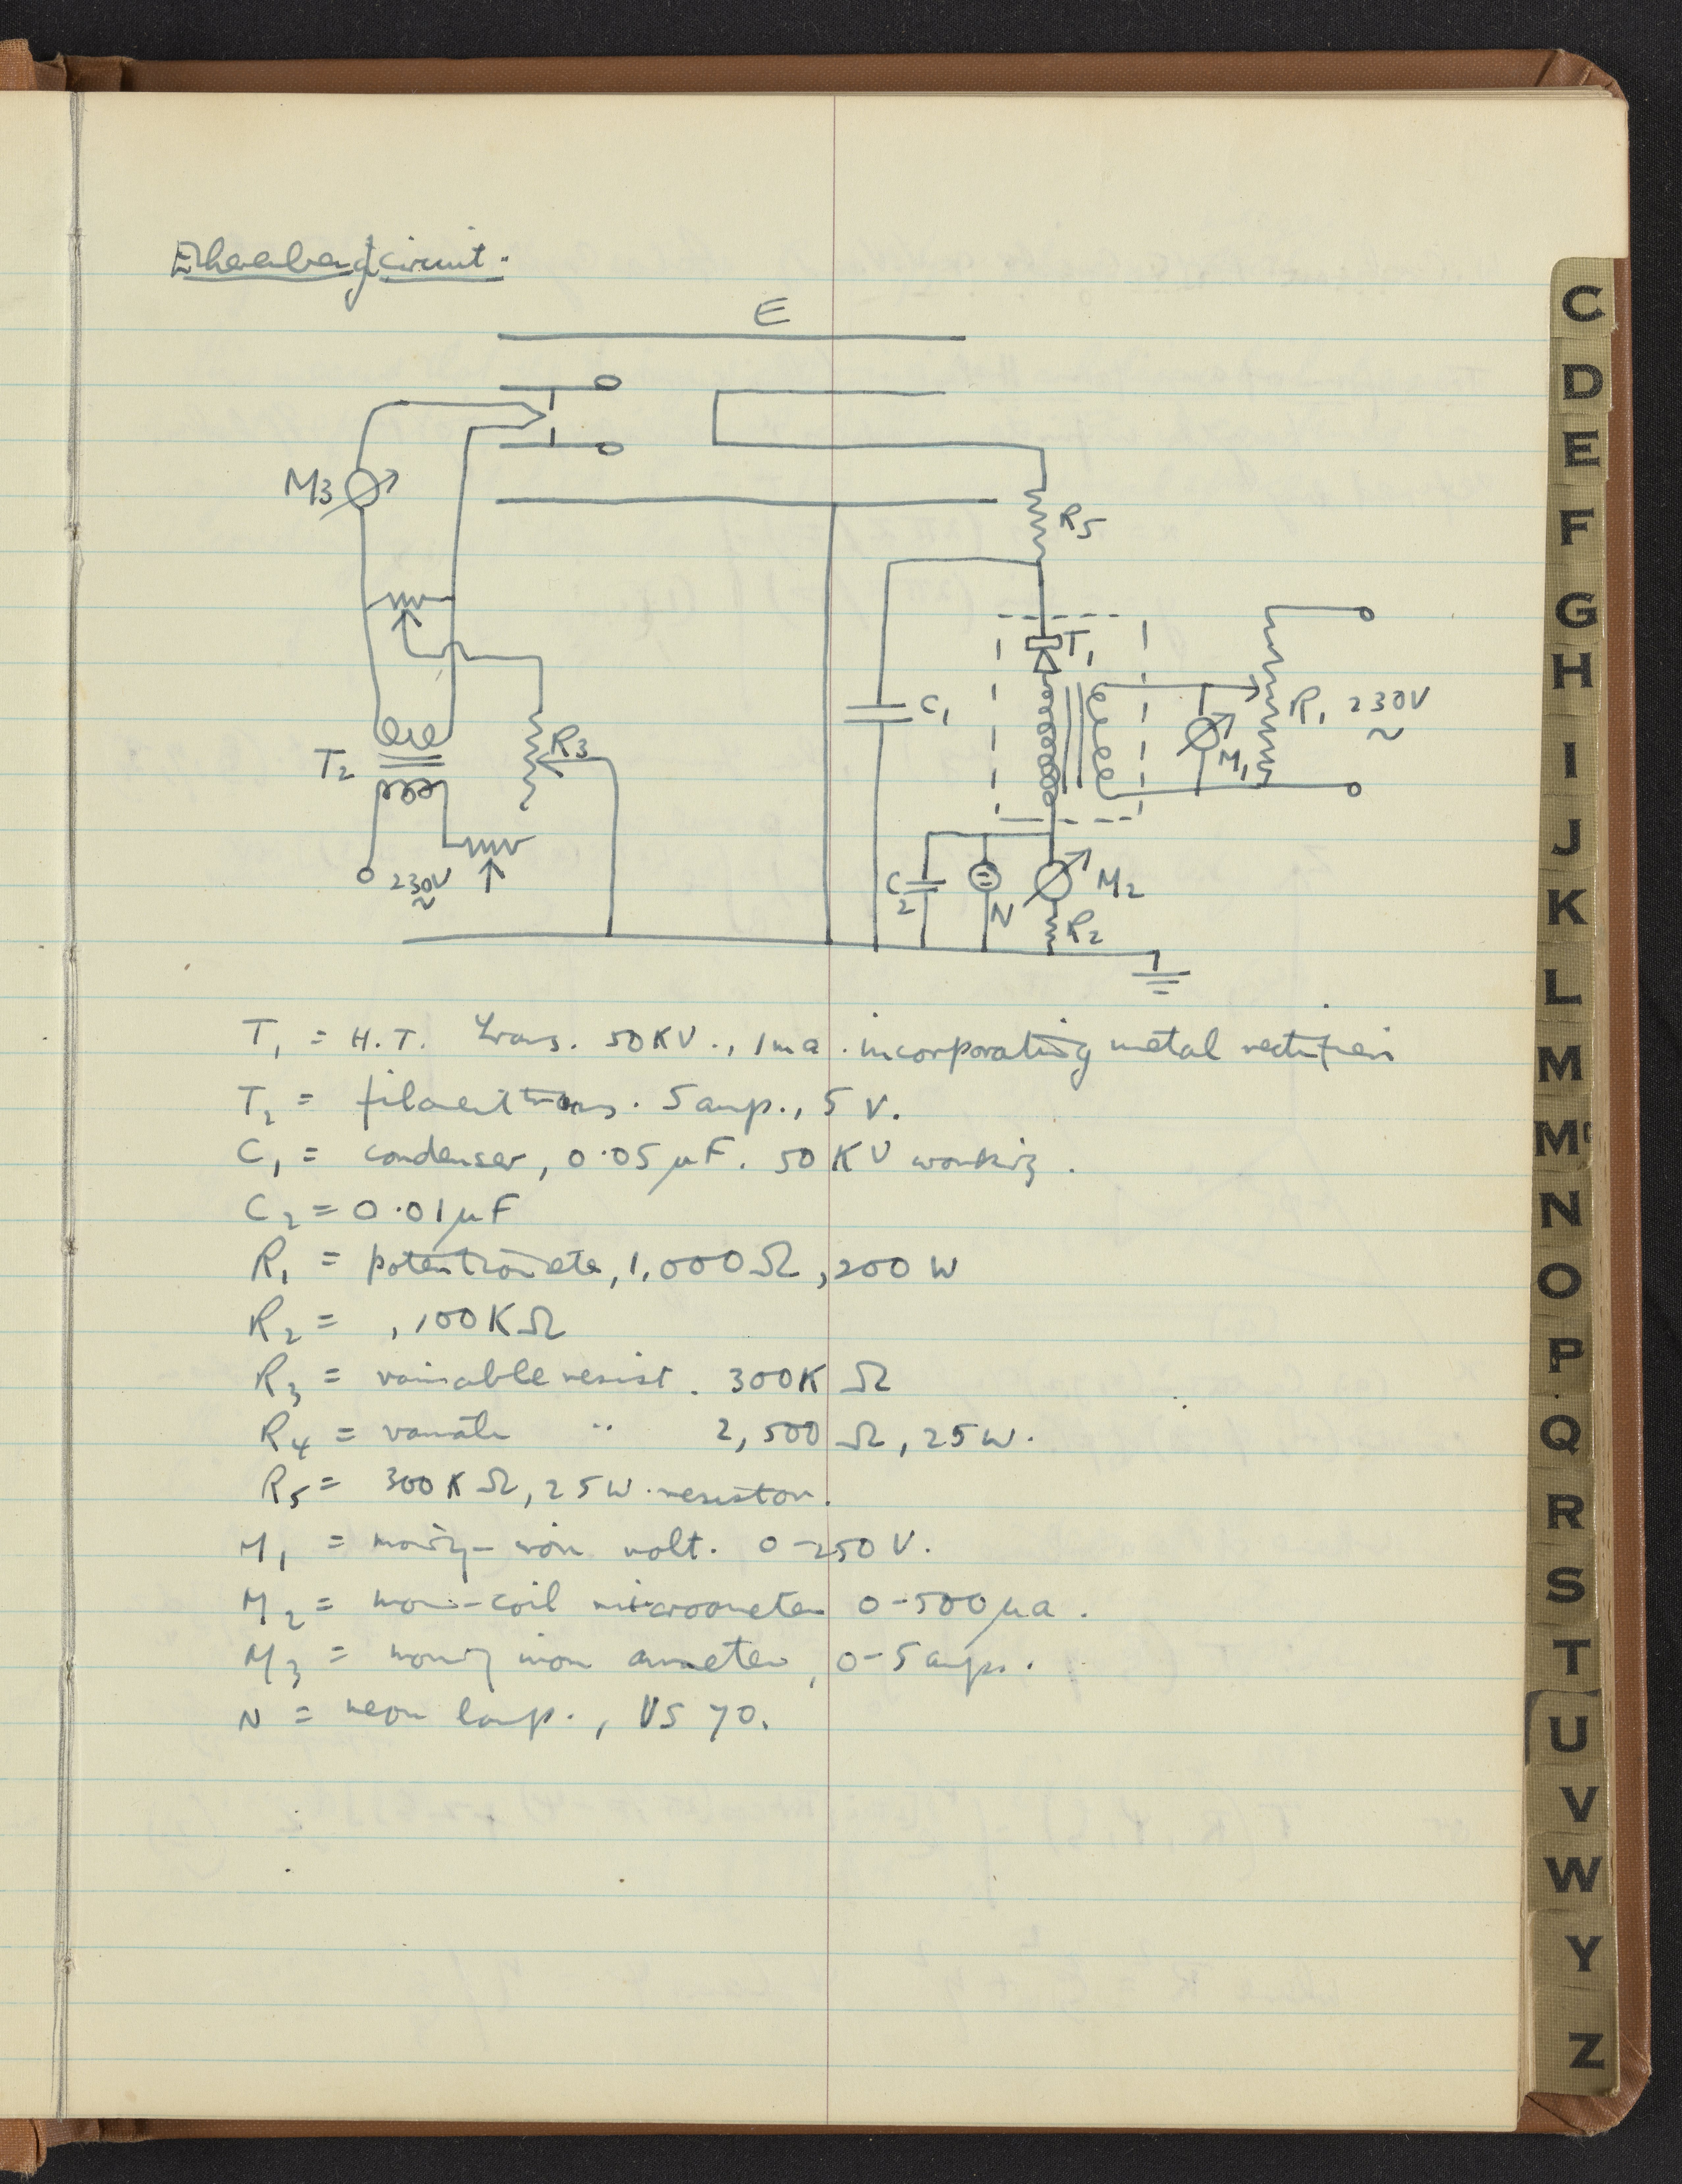 Ehrenberg circuit.
E
M3
R5
T1
C1
R1 230V
~
M1
R3
T2
230V
~
C2
N
M2
R2
T1 = H.T. Trans. 50KV., 1ma. incorporating metal rectifier
T2 = filament trans. 5 amp., 5 V.
C1 = condenser, 0.05 μF. 50 KV working.
C2 = 0.01 μF
R1 = potentiometer, 1,000 Ω, 200 W
R2 = , 100K Ω
R3 = variable resist. 300K Ω
R4 = variable " 2,500 Ω, 25 W.
R5 = 300K Ω, 25W. resistor.
M1 = moving-iron volt. 0-250 V.
M2 = mov-coil microameter 0-500 μa.
M3 = moving iron ameter, 0-5 amps.
N = neon lamp., VS 70.
C
D
E
F
G
H
I
J
K
L
M
Mc
N
O
P
Q
R
S
T
U
V
W
Y
Z